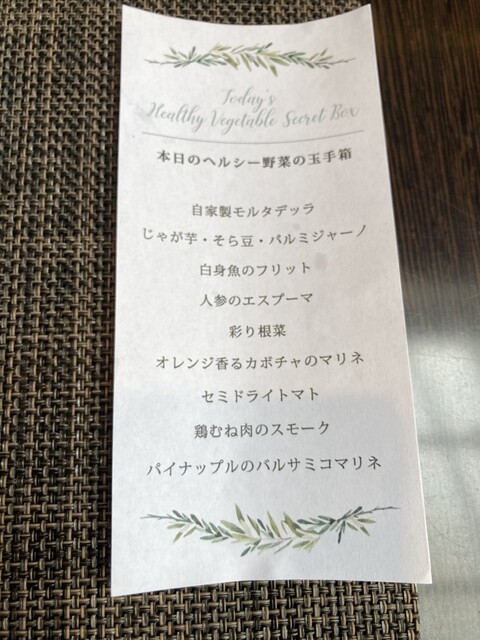 Today's
Healthy Vegetable Secret Box
本日のヘルシー野菜の玉手箱
自家製モルタデッラ
じゃが芋・そら豆・パルミジャーノ
白身魚のフリット
人参のエスプーマ
彩り根菜
オレンジ香るカボチャのマリネ
セミドライトマト
鶏むね肉のスモーク
パイナップルのバルサミコマリネ